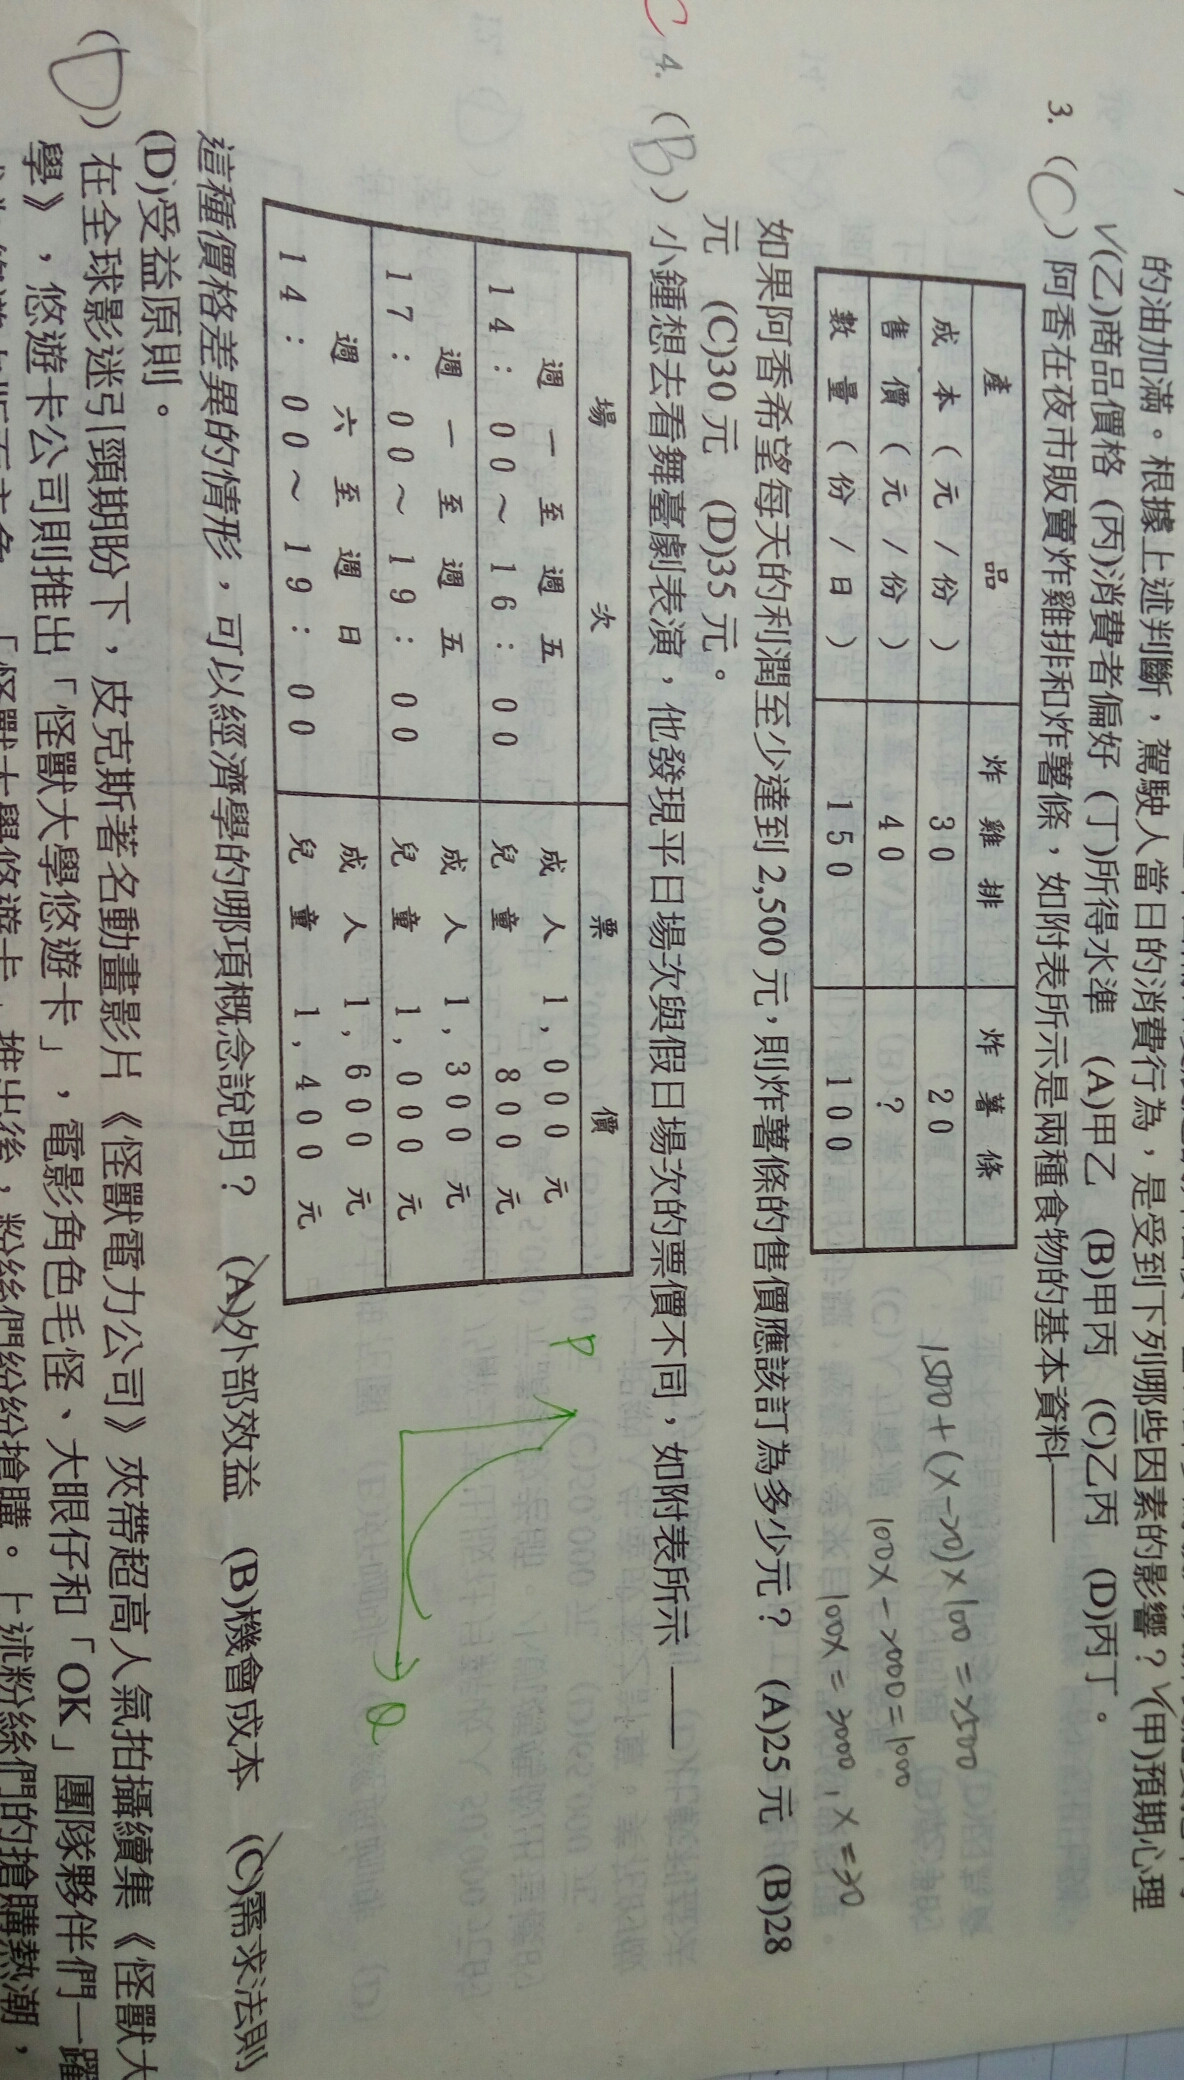 的油加滿。根據上述判斷，駕駛人當日的消費行為，是受到下列哪些因素的影響？√(甲)預期心理
√(乙)商品價格 (丙)消費者偏好 (丁)所得水準 (A)甲乙 (B)甲丙 (C)乙丙 (D)丙丁。
3. (C) 阿香在夜市販賣炸雞排和炸薯條，如附表所示是兩種食物的基本資料——
產品 炸雞排 炸薯條
成本（元/份） 30 20
售價（元/份） 40 ?
數量（份/日） 150 100
1500+(x-20)×100=2500
100x-2000=1000
100x=3000, x=30
如果阿香希望每天的利潤至少達到2,500元，則炸薯條的售價應該訂為多少元？ (A)25元 (B)28
元 (C)30元 (D)35元。
C 4. (B) 小鍾想去看舞臺劇表演，他發現平日場次與假日場次的票價不同，如附表所示——
場次 票價
週一至週五 成人1,000元
14:00～16:00 兒童 800元
週一至週五 成人1,300元
17:00～19:00 兒童1,000元
週六至週日 成人1,600元
14:00～19:00 兒童1,400元
P
Q
這種價格差異的情形，可以經濟學的哪項概念說明？ (A)外部效益 (B)機會成本 (C)需求法則
(D)受益原則。
(D) 在全球影迷引頸期盼下，皮克斯著名動畫影片《怪獸電力公司》夾帶超高人氣拍攝續集《怪獸大
學》，悠遊卡公司則推出「怪獸大學悠遊卡」，電影角色毛怪、大眼仔和「OK」團隊夥伴們一躍
「怪獸大學悠遊卡」推出後，粉絲們紛紛搶購。上述粉絲們的搶購熱潮，